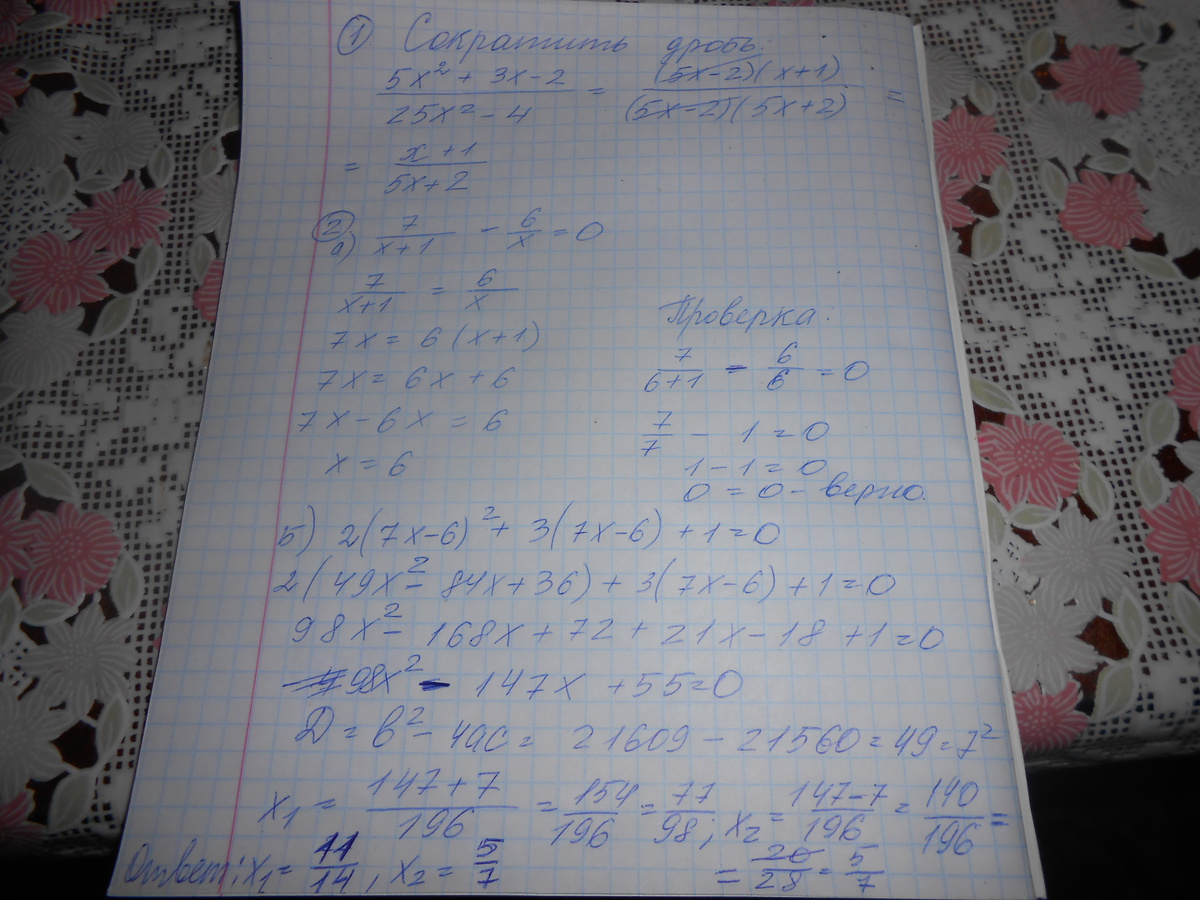 ① Сократить дробь:
(5x² + 3x - 2)/(25x² - 4) = ((5x-2)(x+1))/((5x-2)(5x+2)) =
= (x+1)/(5x+2)
② а) 7/(x+1) - 6/x = 0
7/(x+1) = 6/x
Проверка.
7x = 6(x+1)
7/(6+1) - 6/6 = 0
7x = 6x + 6
7x - 6x = 6
7/7 - 1 = 0
x = 6
1 - 1 = 0
0 = 0 - верно.
б) 2(7x-6)² + 3(7x-6) + 1 = 0
2(49x² - 84x + 36) + 3(7x-6) + 1 = 0
98x² - 168x + 72 + 21x - 18 + 1 = 0
98x² - 147x + 55 = 0
D = b² - 4ac = 21609 - 21560 = 49 = 7²
x₁ = (147+7)/196 = 154/196 = 77/98; x₂ = (147-7)/196 = 140/196 =
= 20/28 = 5/7
Ответ: x₁ = 11/14, x₂ = 5/7